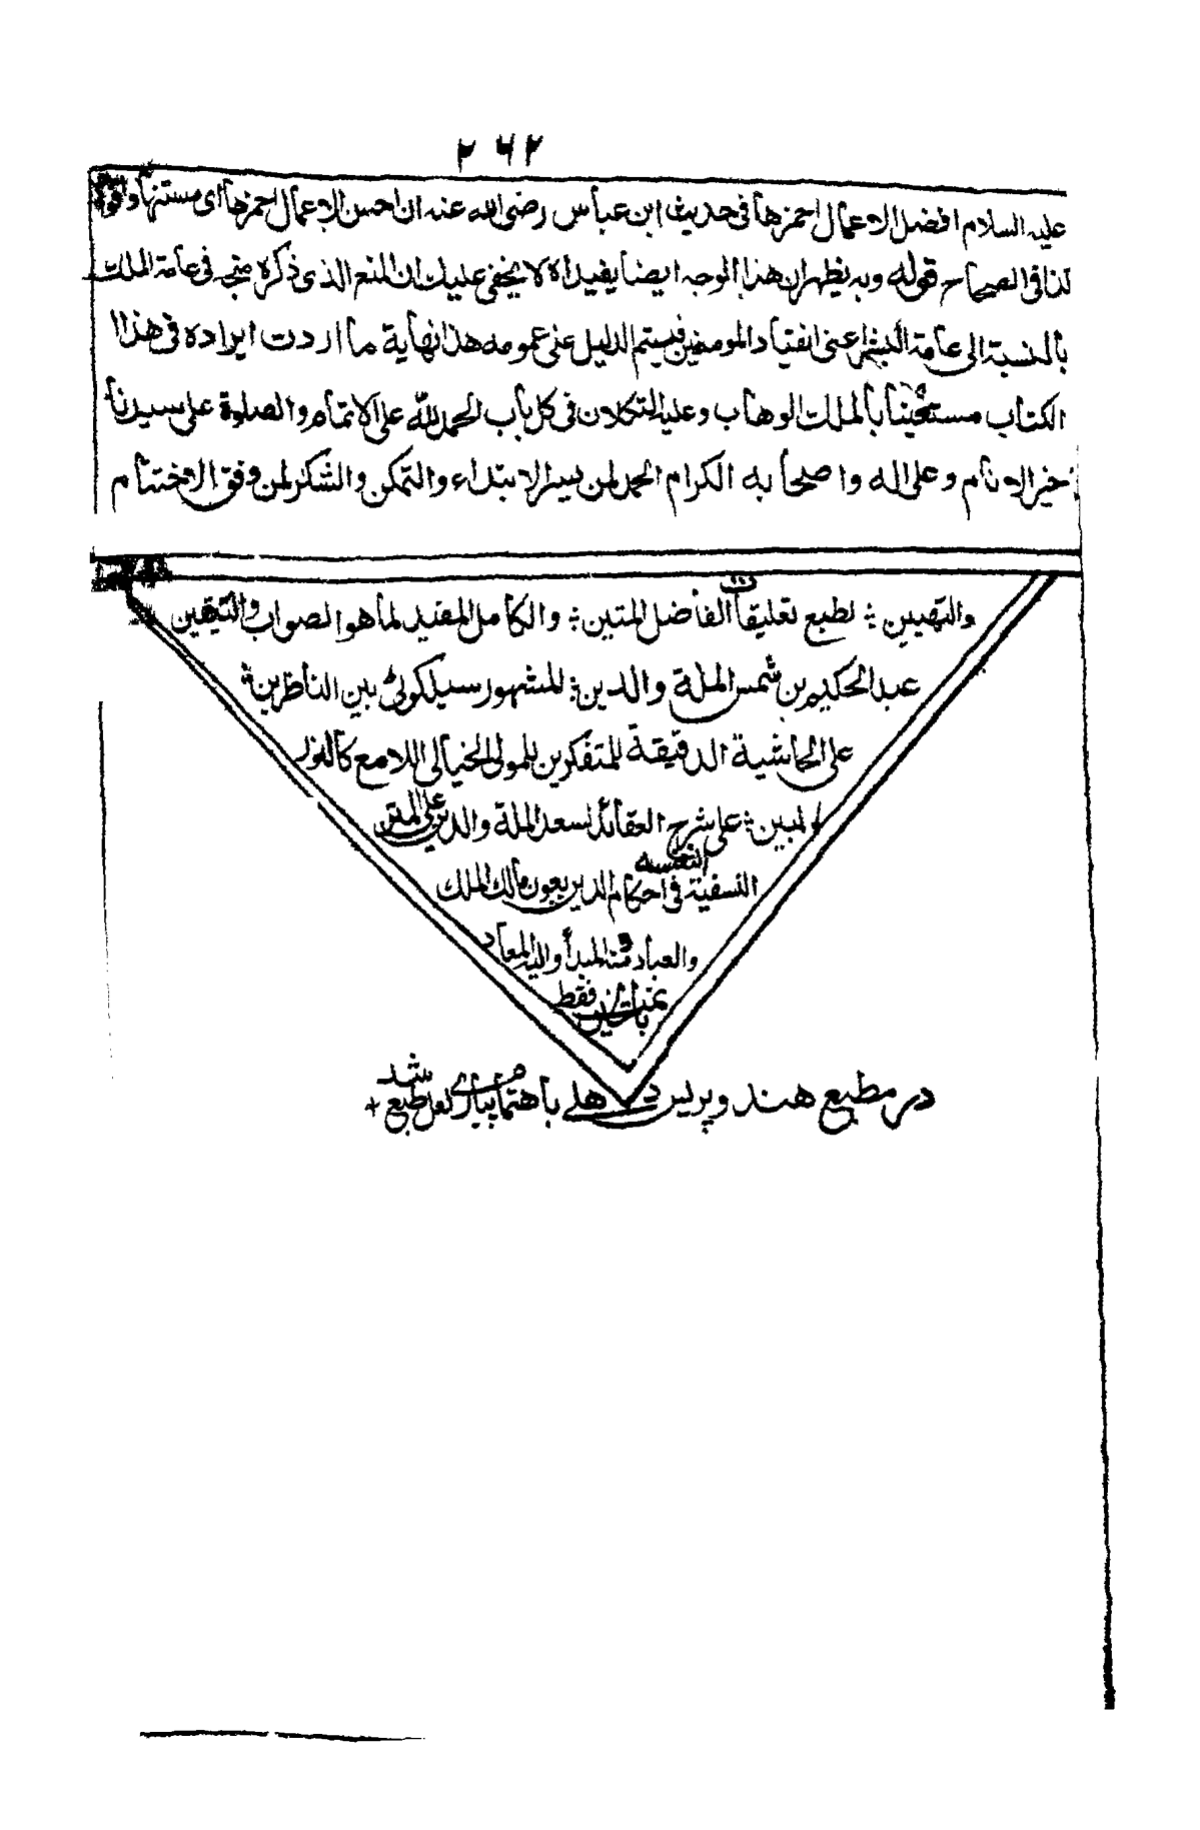 ٢٦٢
عليه السلام افضل الاعمال احمزها في حديث ابن عباس رضي الله عنه ان احسن الاعمال احمزها اى
لذا فى الصحاح قوله وبه يظهر ان هذا الوجه ايضا يفيد اه لا يخفى عليك ان المنع الذى ذكره متجه فى عامة الملك
بالنسبة الى عامة البشر اعنى انقياد المومنين فيتم الدليل على عمومه هذا نهاية ما اردت ايراده فى هذا ا
الكتاب مستعينا بالملك الوهاب وعليه التكلان فى كل باب الحمد لله على الاتمام والصلوة على سيدنا
خير الانام وعلى اله واصحابه الكرام الحمد لمن يسر الابتداء والتمكن والشكر لمن وفق الاختتام
والتهيين لطبع تعليقات الفاضل المتين والكامل المفيد لما هو الصواب واليقين
عبد الحكيم بن شمس الملة والدين المشهور سيلكوٹى بين الناظرين
على الحاشية الدقيقة للمتفكرين للمولى الخيالى اللامع كالنور
المبين على شرح العقائد لسعد الملة والدين على المتن
النسفية فى احكام الدين بعون مالك الملك
والعباد ومنه المبدأ واليه المعاد
فقط
در مطبع هندو پريس دهلے باهتمام پيارے لعل طبع شد